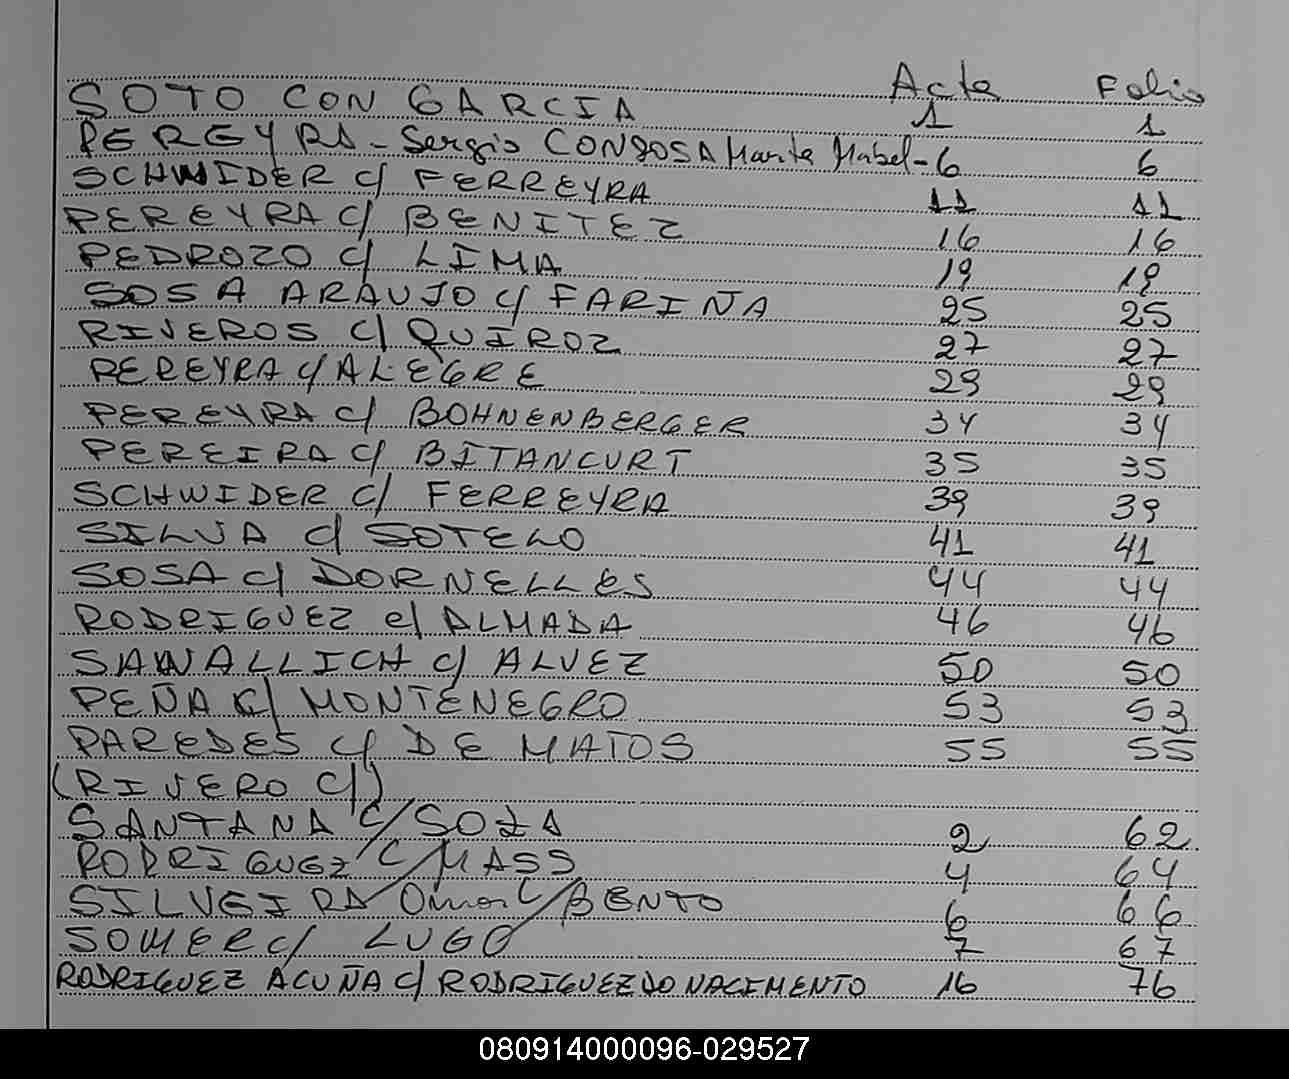 Acta Folio
SOTO CON GARCIA 1 1
PEREYRA - Sergio CON SOSA Marta Mabel - 6 6
SCHWIDER c/ FERREYRA 11 11
PEREYRA c/ BENITEZ 16 16
PEDROZO c/ LIMA 19 19
SOSA ARAUJO c/ FARIÑA 25 25
RIVEROS c/ QUIROZ 27 27
PEREYRA c/ ALEGRE 29 29
PEREYRA c/ BOHNENBERGER 34 34
PEREIRA c/ BITANCURT 35 35
SCHWIDER c/ FERREYRA 39 39
SILVA c/ SOTELO 41 41
SOSA c/ DORNELLES 44 44
RODRIGUEZ c/ ALMADA 46 46
SAWALLICH c/ ALVEZ 50 50
PEÑA c/ MONTENEGRO 53 53
PAREDES c/ DE MATOS 55 55
(RIVERO c/)
SANTANA c/ SOZA 2 62
RODRIGUEZ c/ MASS 4 64
SILVEIRA Omar c/ BENTO 6 66
SOMER c/ LUGO 7 67
RODRIGUEZ ACUÑA c/ RODRIGUEZ DO NACIMENTO 16 76
080914000096-029527